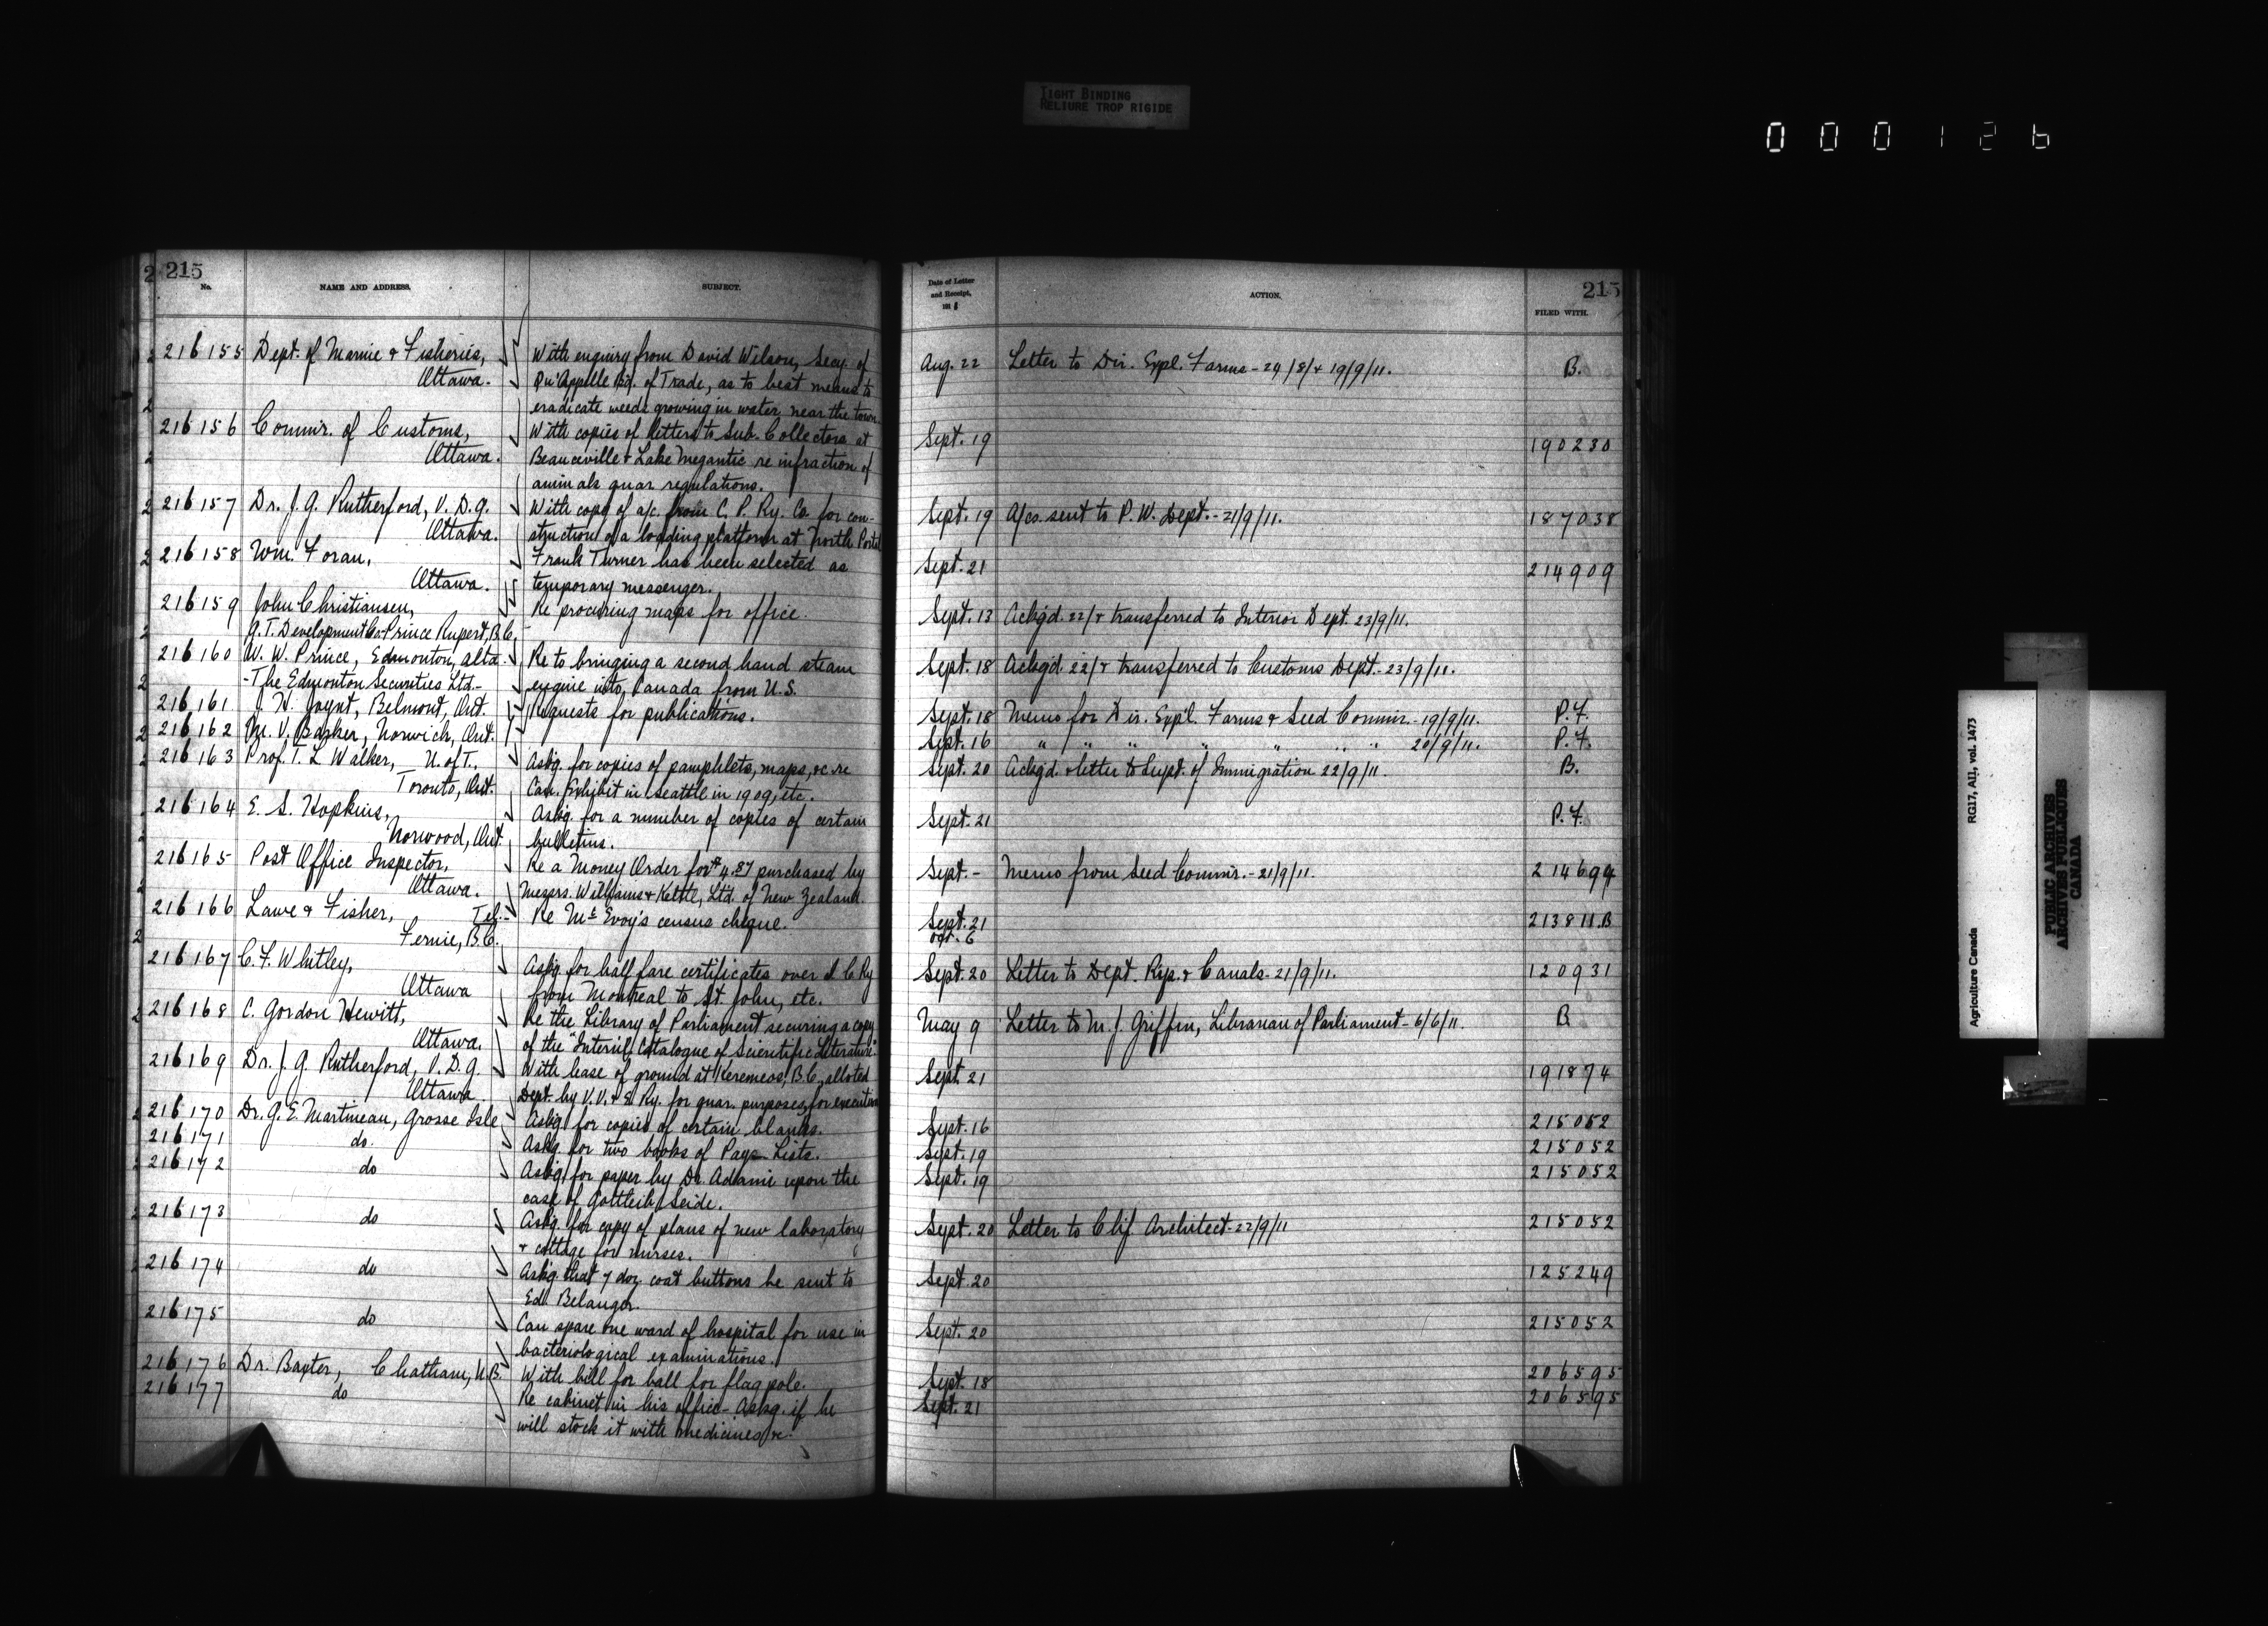 TIGHT BINDING
RELIURE TROP RIGIDE
000126
215
No.
NAME AND ADDRESS.
SUBJECT.
216155 Dept. of Marine & Fisheries, With enquiry from David Wilson, Secy. of
Ottawa. Qu'Appelle Bd. of Trade, as to best means to
eradicate weeds growing in water near the town
216156 Commr. of Customs, With copies of letters to Sub. Collectors at
Ottawa. Beauceville & Lake Megantic re infraction of
animals quar regulations.
216157 Dr. J. G. Rutherford, V. D. G. With copy of a/c. from C. P. Ry. Co. for con-
Ottawa. struction of a loading platform at North Portal
216158 Wm. Foran, Frank Turner has been selected as
Ottawa. temporary messenger.
216159 John Christiansen, Re procuring maps for office.
G. T. Development Co. Prince Rupert, B.C.
216160 W. W. Prince, Edmonton, Alta. Re to bringing a second hand steam
-The Edmonton Securities Ltd.- engine into Canada from U.S.
216161 J. W. Joynt, Belmont, Ont. Requests for publications.
216162 M. V. Barker, Norwich, Ont.
216163 Prof. T. L. Walker, U. of T., Askg. for copies of pamphlets, maps, &c. re
Toronto, Ont. Can. Exhibit in Seattle in 1909, etc.
216164 E. S. Hopkins, Askg. for a number of copies of certain
Norwood, Ont. bulletins.
216165 Post Office Inspector, Re a Money Order for $4.87 purchased by
Ottawa. Messrs. Williams & Kettle, Ltd. of New Zealand.
216166 Lawe & Fisher, Tel.- Re McEvoy's census cheque.
Fernie, B.C.
216167 C. F. Whitley, Askg. for half fare certificates over I C Ry
Ottawa from Montreal to St. John, etc.
216168 C. Gordon Hewitt, Re the Library of Parliament securing a copy
Ottawa. of the "Intern'l. Catalogue of Scientific Literature"
216169 Dr. J. G. Rutherford, V. D. G. With lease of ground at Keremeos, B.C., alloted
Ottawa. Dept. by V. V. & E. Ry. for quar. purposes, for execution
216170 Dr. G. E. Martineau, Grosse Isle Askg. for copies of certain blanks.
216171 do. Askg. for two books of Paye Lists.
216172 do Askg. for paper by Dr. Adami upon the
case of Gottleib Seide.
216173 do Askg. for copy of plans of new laboratory
& cottage for nurses.
216174 do Askg. that 7 doz. coat buttons be sent to
Ed. Belanger.
216175 do Can spare one ward of hospital for use in
bacteriological examinations.
216176 Dr. Baxter, Chatham, N.B. With bill for ball for flag pole.
216177 do Re cabinet in his office - Askg. if he
will stock it with medicines &c.
Date of Letter
and Receipt,
191
ACTION.
215
FILED WITH.
Aug. 22 Letter to Dir. Expl. Farms - 24/8/ & 19/9/11. B.
Sept. 19 190230
Sept. 19 A/cs. sent to P. W. Dept. - 21/9/11. 187038
Sept. 21 214909
Sept. 13 Ackg'd. 22/ & transferred to Interior Dept. 23/9/11.
Sept. 18 Ackg'd. 22/ & transferred to Customs Dept. - 23/9/11.
Sept. 18 Memo for Dir. Exp'l. Farms & Seed Commr. - 19/9/11. P. F.
Sept. 16 " " " " " " " 20/9/11. P. F.
Sept. 20 Ackg'd. & letter to Supt. of Immigration 22/9/11. B.
Sept. 21 P. F.
Sept. - Memo from Seed Commr. - 21/9/11. 214694
Sept. 21 213811.B
Oct. 6
Sept. 20 Letter to Dept. Rys. & Canals - 21/9/11. 120931
May 9 Letter to M. J. Griffin, Librarian of Parliament - 6/6/11. B
Sept. 21 191874
Sept. 16 215052
Sept. 19 215052
Sept. 19 215052
Sept. 20 Letter to Chf. Architect - 22/9/11 215052
Sept. 20 125249
Sept. 20 215052
Sept. 18 206595
Sept. 21 206595
Agriculture Canada RG17, AII, vol. 1473
PUBLIC ARCHIVES
ARCHIVES PUBLIQUES
CANADA